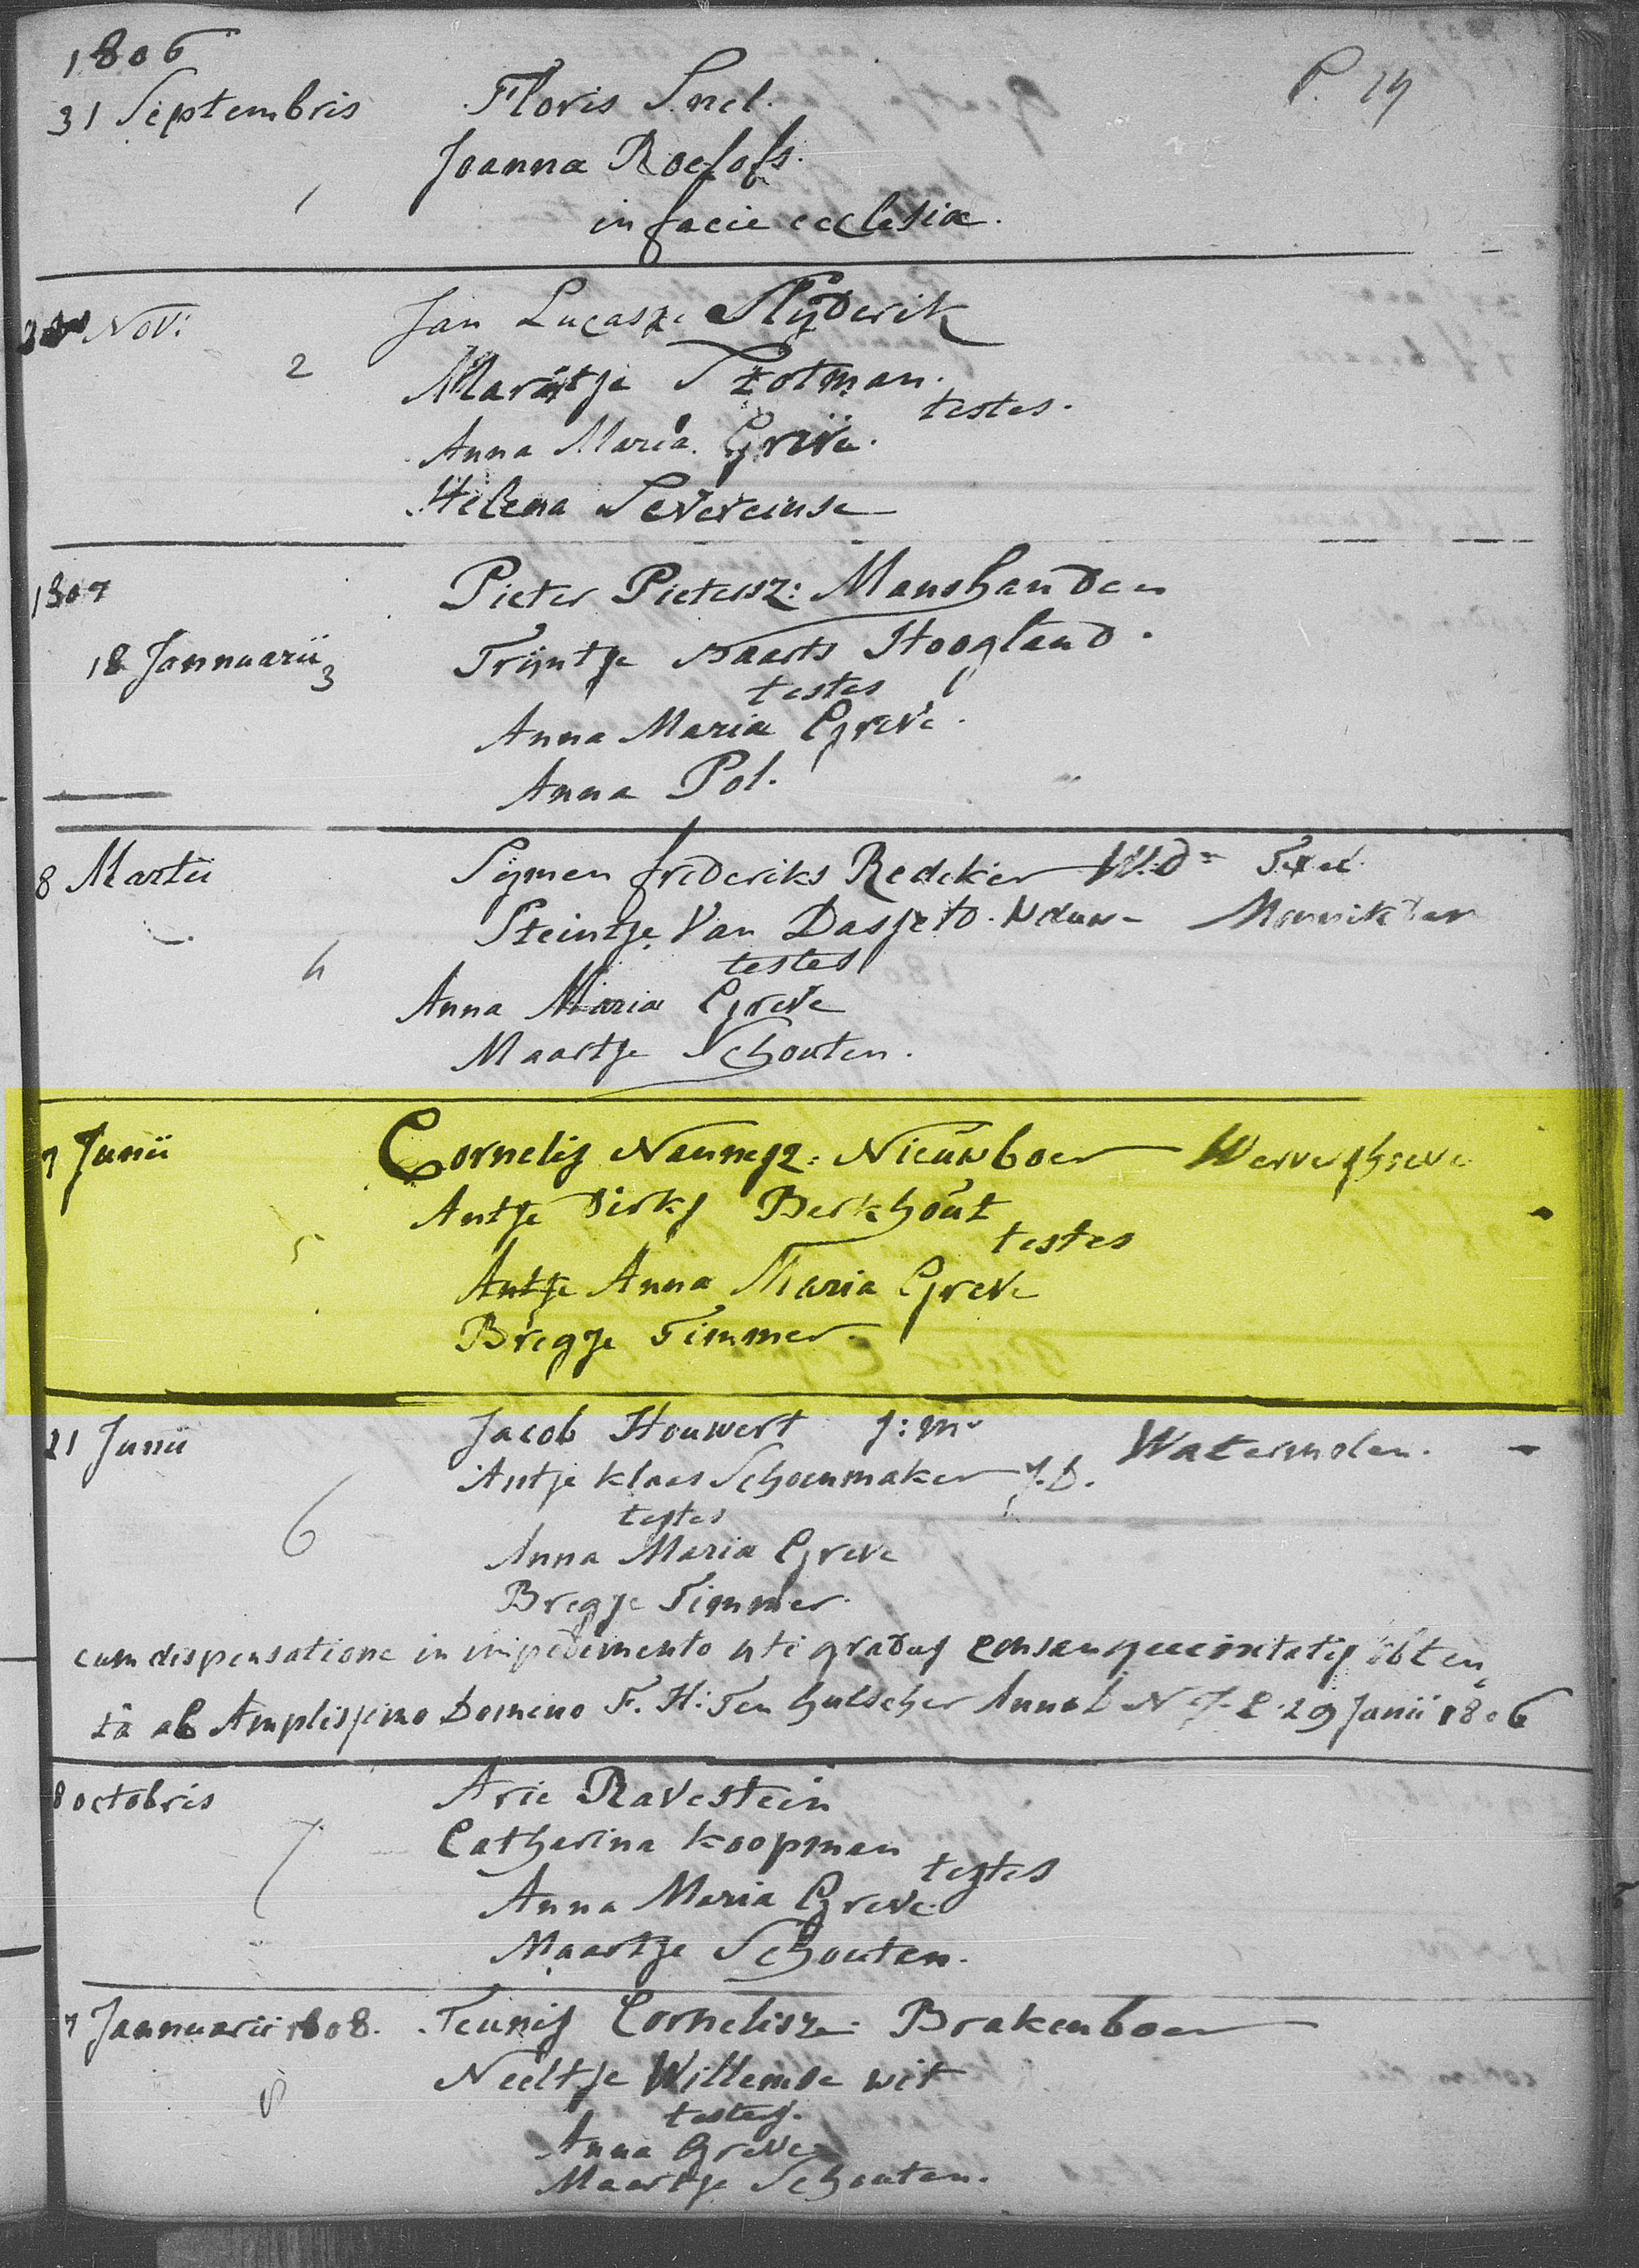 1806 P. 19
31 Septembris Floris Snel.
Joanna Roelofs.
1 in facie ecclesiæ.
Nov: Jan Lucasz. Slijderik
2 Marijtje Slotman.
testes.
Anna Maria Greve.
Helena Severeinse
1807 Pieter Pietersz: Manshanden
18 Jannuarii 3 Trijntje Baarts Hoogland.
testes
Anna Maria Greve.
Anna Pol.
8 Martii Sijmen frederiks Redeker W.d= Texel.
Steintje Van Dasjeld. Weduw- Monnikdam
4 testes
Anna Maria Greve
Maartje Schouten.
7 Junii Cornelis Nannesz: Nieuwboer Wervershoeve
Antje Dirks Berkhout
5 testes
Antje Anna Maria Greve
Bregje Timmer
21 Junii Jacob Houwert J:m. Watermolen.
Antje klaas Schoenmaker J.D.
6 testes
Anna Maria Greve
Bregje Timmer.
cum dispensatione in impedimento 4ti gradus consanguinitatis obten
ta ab Amplissimo Domino F. H: Ten hulscher 29 Junii 1806
8 octobris Arie Ravestein
7 Catharina koopman
testes
Anna Maria Greve
Maartje Schouten.
7 Jannuarii 1808. Teunis Cornelisz. Brakenboer
8 Neeltje Willemse wit
testes.
Anna Greve
Maartje Schouten.